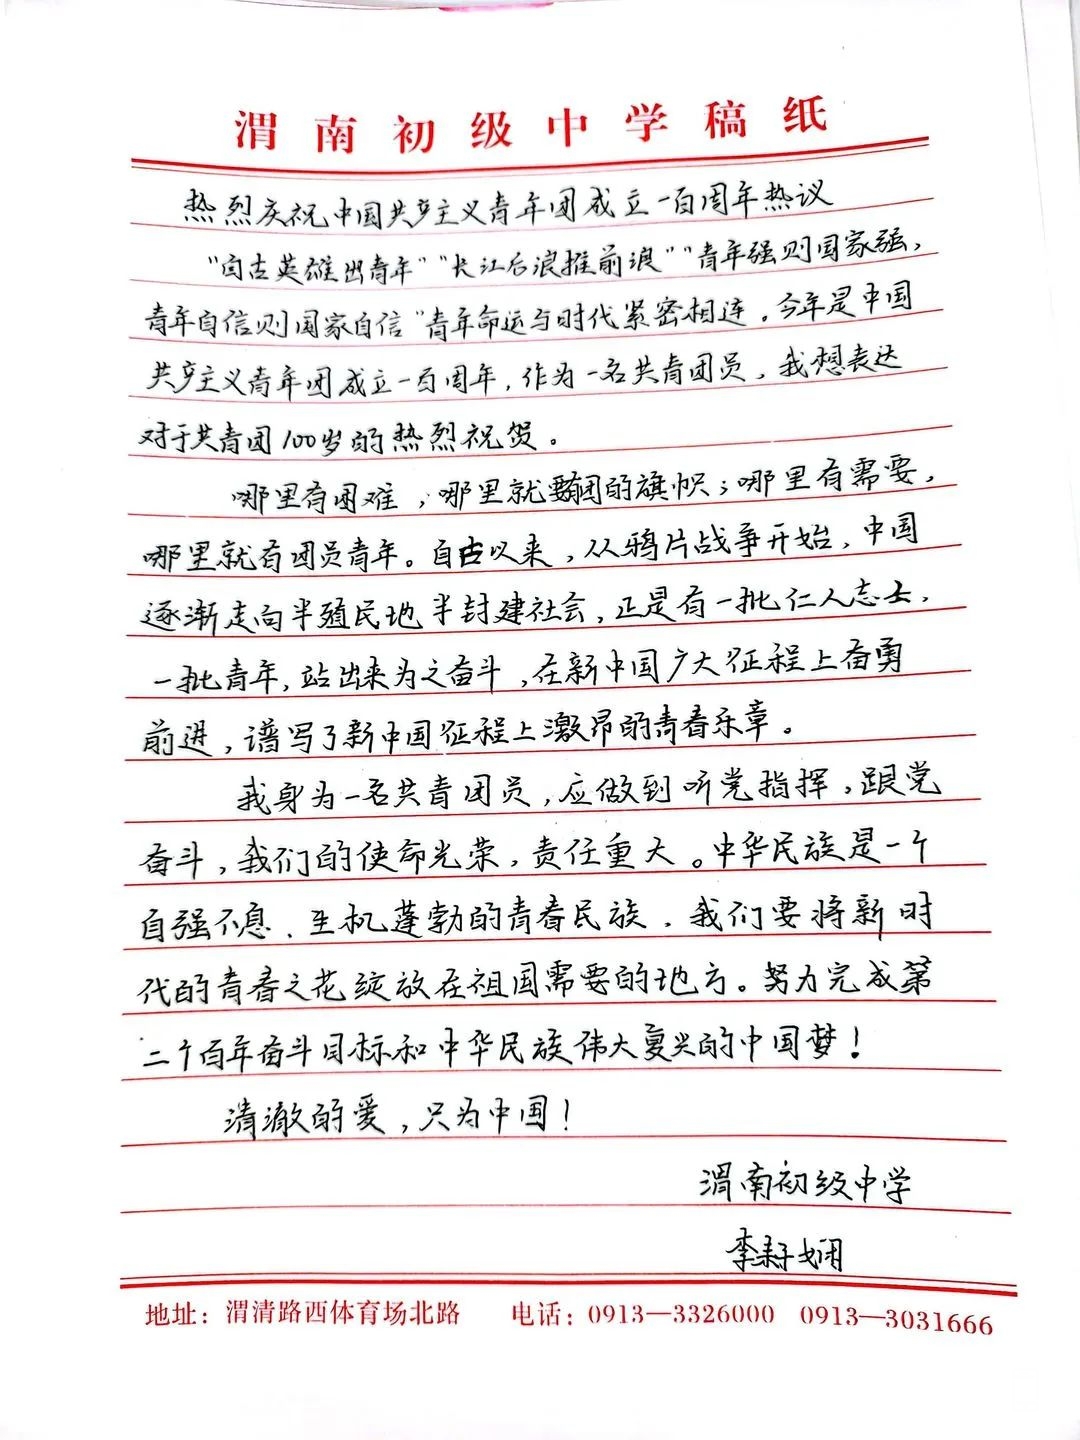 渭南初级中学稿纸
热烈庆祝中国共产主义青年团成立一百周年热议
“自古英雄出青年”“长江后浪推前浪”“青年强则国家强，
青年自信则国家自信”青年命运与时代紧密相连。今年是中国
共产主义青年团成立一百周年，作为一名共青团员，我想表达
对于共青团100岁的热烈祝贺。
哪里有困难，哪里就要有团的旗帜；哪里有需要，
哪里就有团员青年。自古以来，从鸦片战争开始，中国
逐渐走向半殖民地半封建社会，正是有一批仁人志士，
一批青年，站出来为之奋斗，在新中国广大征程上奋勇
前进，谱写了新中国征程上激昂的青春乐章。
我身为一名共青团员，应做到听党指挥，跟党
奋斗，我们的使命光荣，责任重大。中华民族是一个
自强不息、生机蓬勃的青春民族，我们要将新时
代的青春之花绽放在祖国需要的地方。努力完成第
二个百年奋斗目标和中华民族伟大复兴的中国梦！
清澈的爱，只为中国！
渭南初级中学
李娴
地址：渭清路西体育场北路 电话：0913—3326000 0913—3031666